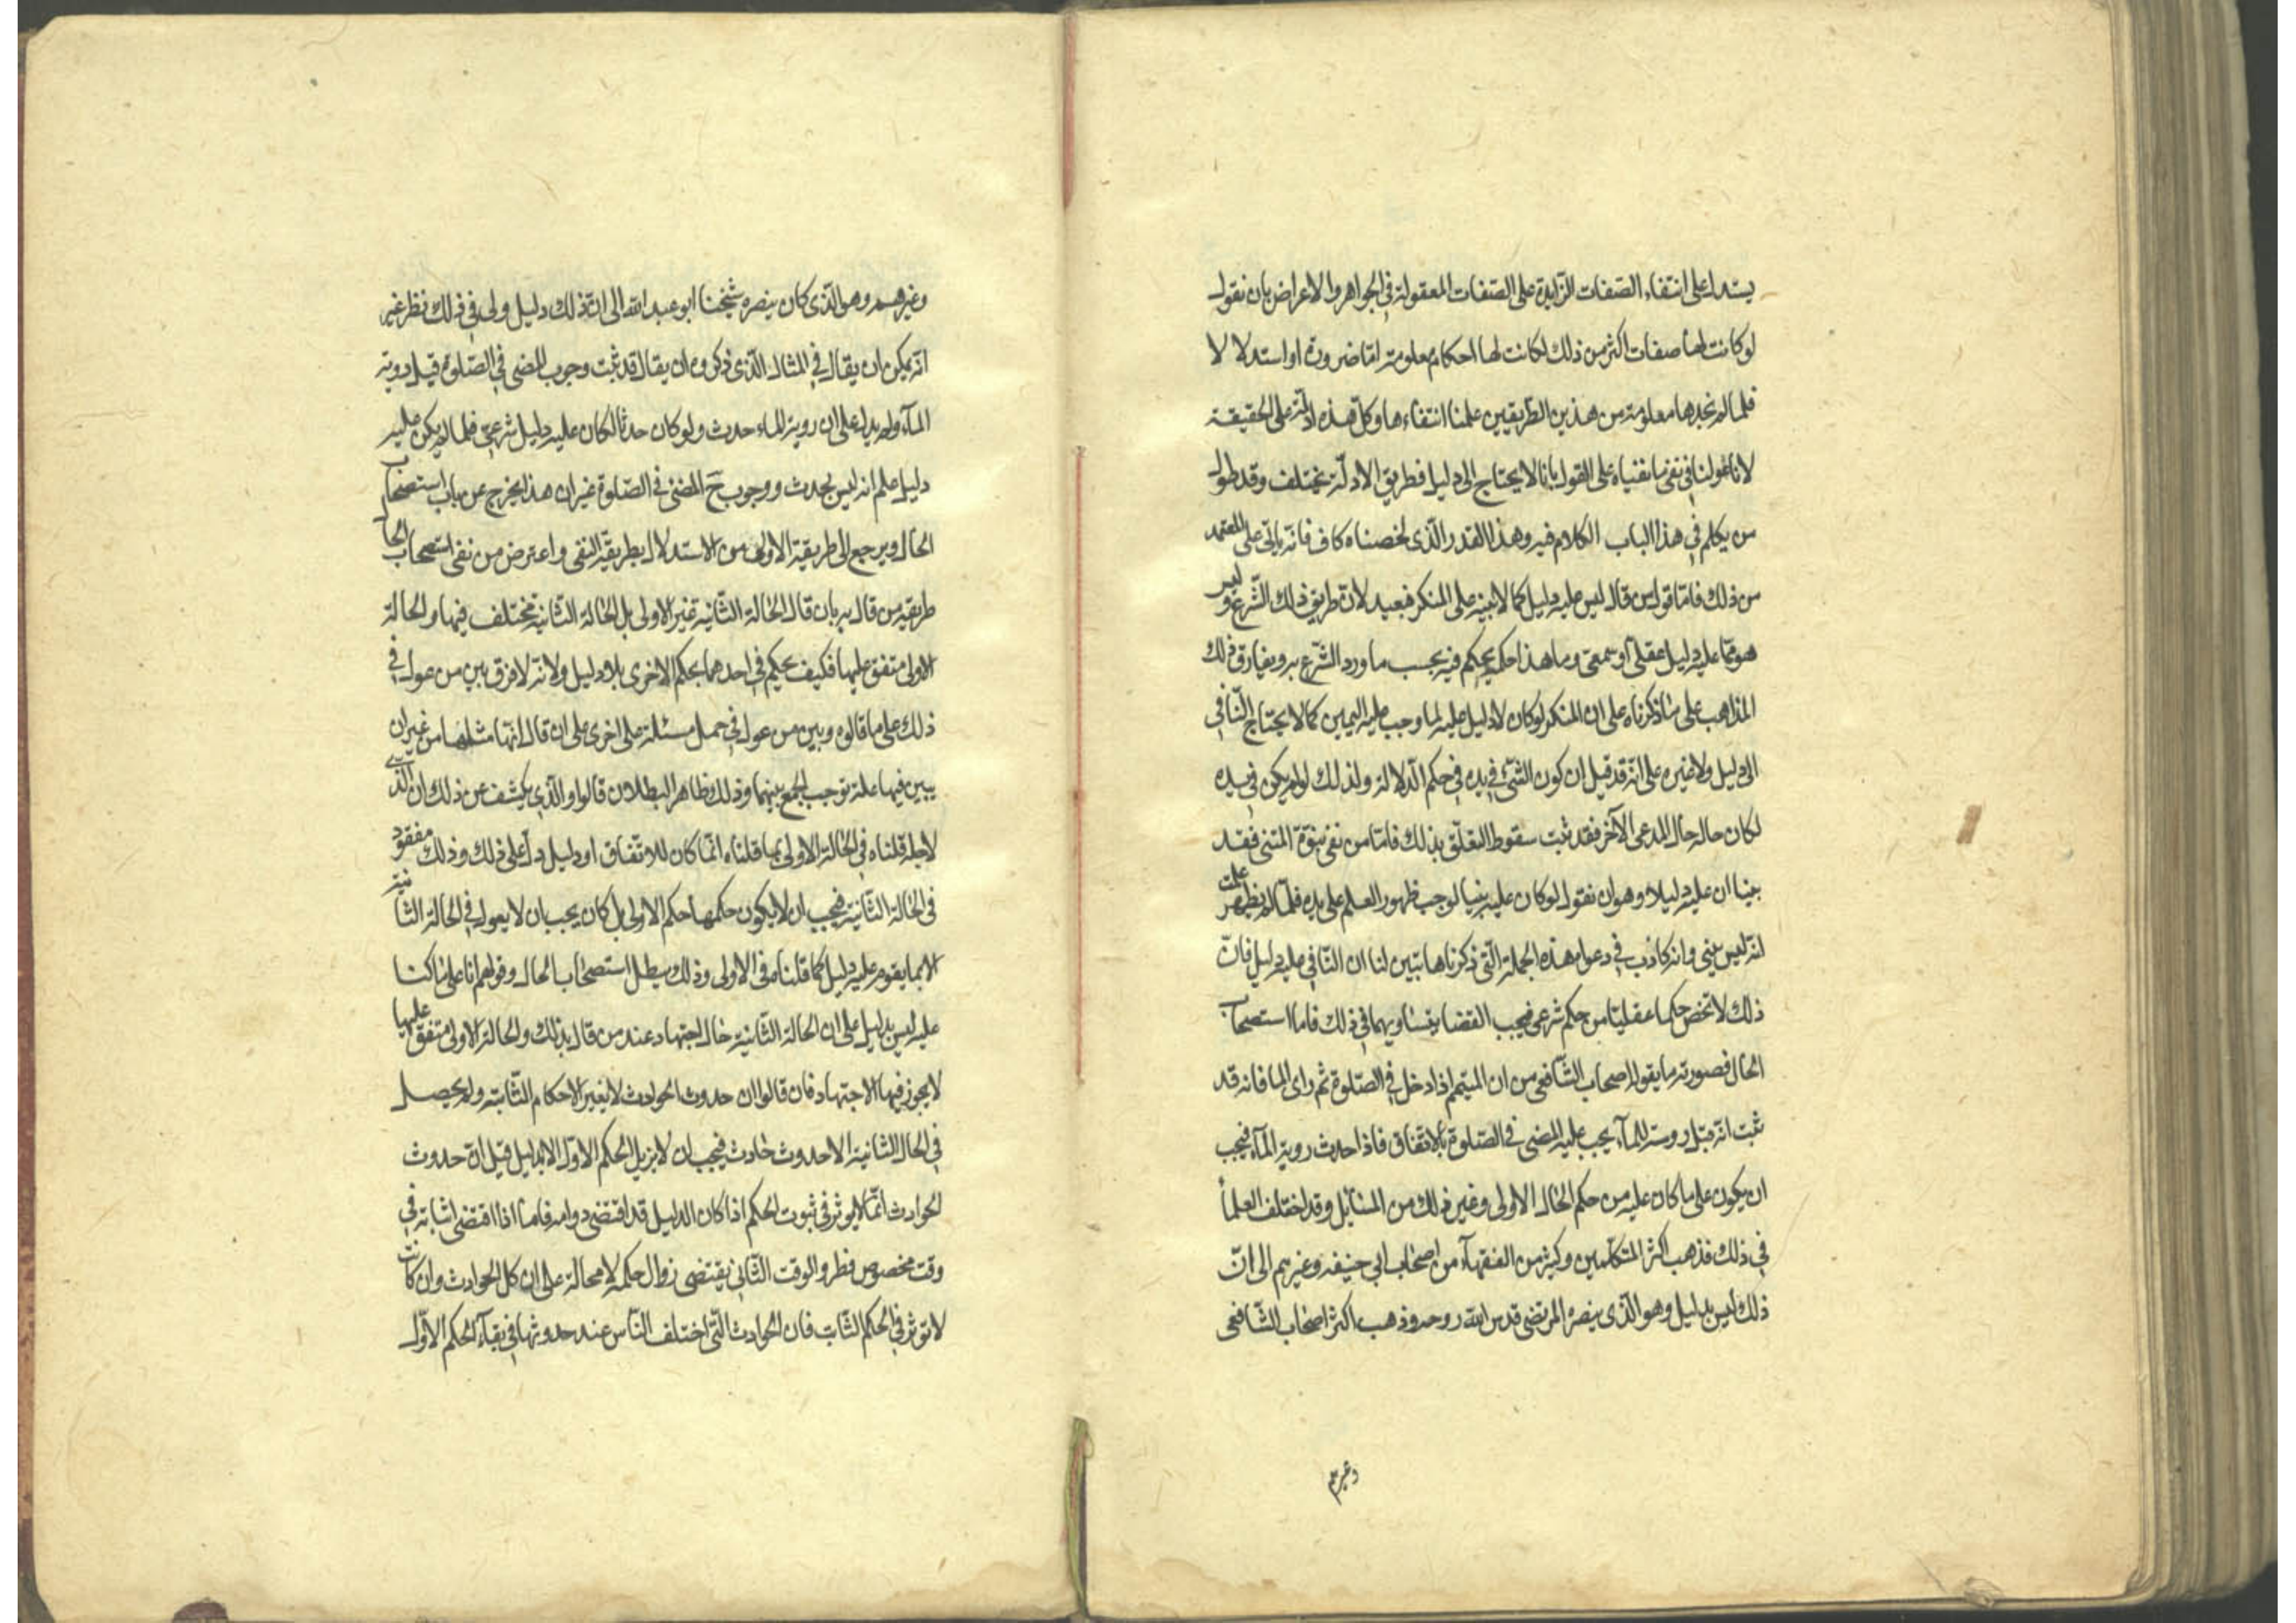 يستدل على انتفاء الصّفات الزّايدة على الصّفات المعقولة في الجواهر والاعراض بان نقول
لو كانت لها صفات اكثر من ذلك لكانت لها احكام معلومة امّا ضرورة او استدلالا
فلما لم نجدها معلومة من هذين الطّريقين علمنا انتفاءها وكلّ هذه ادلّة على الحقيقة
لانا عولنا في نفي ما نفيناه على القول بانا لا يحتاج الى دليل فطريق الادلّة يختلف وقد طول
من يكلم في هذا الباب الكلام فيه وهذا القدر الّذى لخصناه كاف فانّه ياتى على المعتمد
من ذلك فامّا قول من قال ليس عليه دليل كما لا بينه على المنكر فبعيد لان طريق ذلك الشّرع وليس
هو ممّا عليه دليل عقلىّ او سمعىّ وما هذا حكمه يحكم فيه بحسب ما ورد الشّرع به ويفارق ذلك
المذاهب على ما ذكرناه على ان المنكر لو كان لا دليل عليه لما وجب عليه اليمين كما لا يحتاج النّافى
الى دليل ولا غيره على انّه قد قيل ان كون الشّئ في يده في حكم الدّلالة ولذلك لو لم يكن في يده
لكان حاله حال المدعى الآخر فقد ثبت سقوط التعلّق بذلك فامّا من نفى نبوّة المتنبى فقد
بينا ان عليه دليلا وهو ان نقول لو كان عليه نبيا لوجب ظهور العلم على يده فلمّا لم يظهر علمت
انّه ليس بنبى وانه كاذب في دعواه هذه الجملة الّتى ذكرناها تبيّن لنا ان النّافي عليه دليل فانّ
ذلك لا تخص حكما عقليّا من حكم شرعى فيجب القضا بتساويهما في ذلك فاما استصحاب
الحال فصورته ما يقوله اصحاب الشّافعى من ان المتيمم اذا دخل في الصّلوة ثم راى الما فانه قد
ثبت انّه قبل رويته للمآء يجب عليه المضى في الصّلوة بالاتّفاق فاذا حدث روية المآء فيجب
ان يكون على ما كان عليه من حكم الحال الاولى وغير ذلك من المسائل وقد اختلف العلمآ
في ذلك فذهب اكثر المتكلّمين وكثير من الفقهآء من اصحاب ابى حنيفه وغيرهم الى انّ
ذلك ليس بدليل وهو الّذى ينصره المرتضى قدس الله روحه وذهب اكثر اصحاب الشّافعى
وغيرهم
وغيرهم وهو الّذى كان ينصره شيخنا ابو عبد الله الى انّ ذلك دليل ولى في ذلك نظر غير
انّه يمكن ان يقال في المثال الّذى ذكروه ان يقال قد ثبت وجوب المضى في الصّلوة قبل روية
المآء ولم يدل على ان روية الماء حدث ولو كان حدثا لكان عليه دليل شرعىّ فلما لم يكن عليه
دليل علم انه ليس بحدث ووجوب ح المضى في الصّلوة غير ان هذا يخرج عن باب استصحاب
الحال ويرجع الى طريقة الاولى من الاستدلال بطريقة النفى واعترض من نفى استصحاب الحال
طريقه من قال به بان قال الحالة الثّانية غير الاولى بل الحالة الثانية مختلف فيها والحالة
الاولى متفق عليها فكيف يحكم في احدهما بحكم الاخرى بلا دليل ولانّه لا فرق بين من عول في
ذلك على ما قالوه وبين من عول في حمل مسئلة على اخرى على ان قال انها مثلها من غير ان
يبين فيها علة توجب الجمع بينهما وذلك ظاهر البطلان قالوا والّذى يكشف عن ذلك ان الّذى
لاجله قلناه في الحالة الاولى بما قلناه انّما كان للاتّفاق او دليل دلّ على ذلك وذلك مفقود
في الحالة الثّانية فيجب ان لا يكون حكمها حكم الاولى بل كان يجب ان لا يعول في الحالة الثانية
الا بما يقوم عليه دليل كما قلناه في الاولى وذلك يبطل استصحاب الحال وقولهم انا على ما كنا
عليه ليس بدليل على ان الحالة الثّانية حال اجتهاد عند من قال بذلك والحالة الاولى متفق عليها
لا يجوز فيها الاجتهاد فان قالوا ان حدوث الحوادث لا يغير الاحكام الثّابته ولم يحصل
في الحال الثانية الا حدوث حادث فيجب ان لا يزيل الحكم الاوّل الا بدليل قيل انّ حدوث
الحوادث انّما لا يوثر في ثبوت الحكم اذا كان الدليل قد اقتضى دوامه فاما اذا اقتضى اثباته في
وقت مخصوص فطرو الوقت الثّانى يقتضى زوال حكمه لا محالة على ان كل الحوادث وان كانت
لا توثر في الحكم الثّابت فان الحوادث الّتى اختلف النّاس عند حدوثها في بقآء الحكم الاوّل